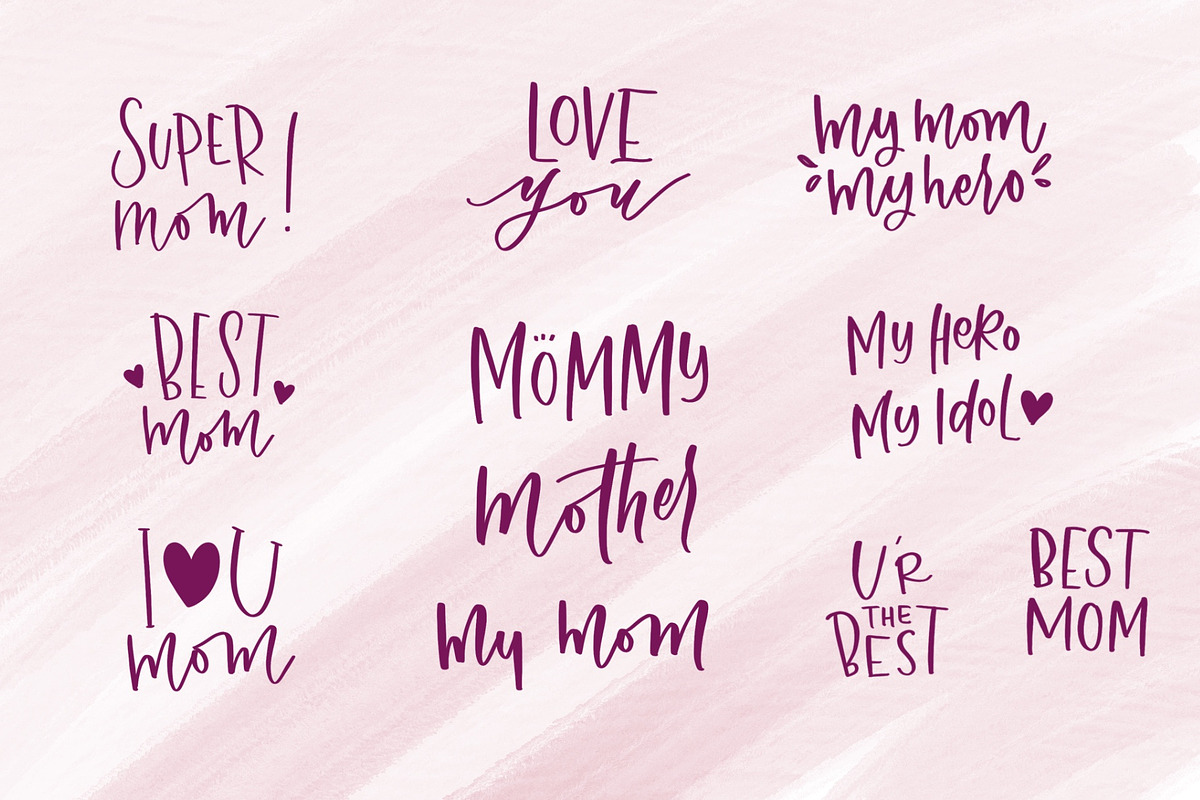 SUPER
mom!
LOVE
you
my mom
my hero
BEST
mom
MOMMy
My HeRo
My IdoL
mother
I ♥ U
mom
my mom
U'R
THE
BEST
BEST
MOM